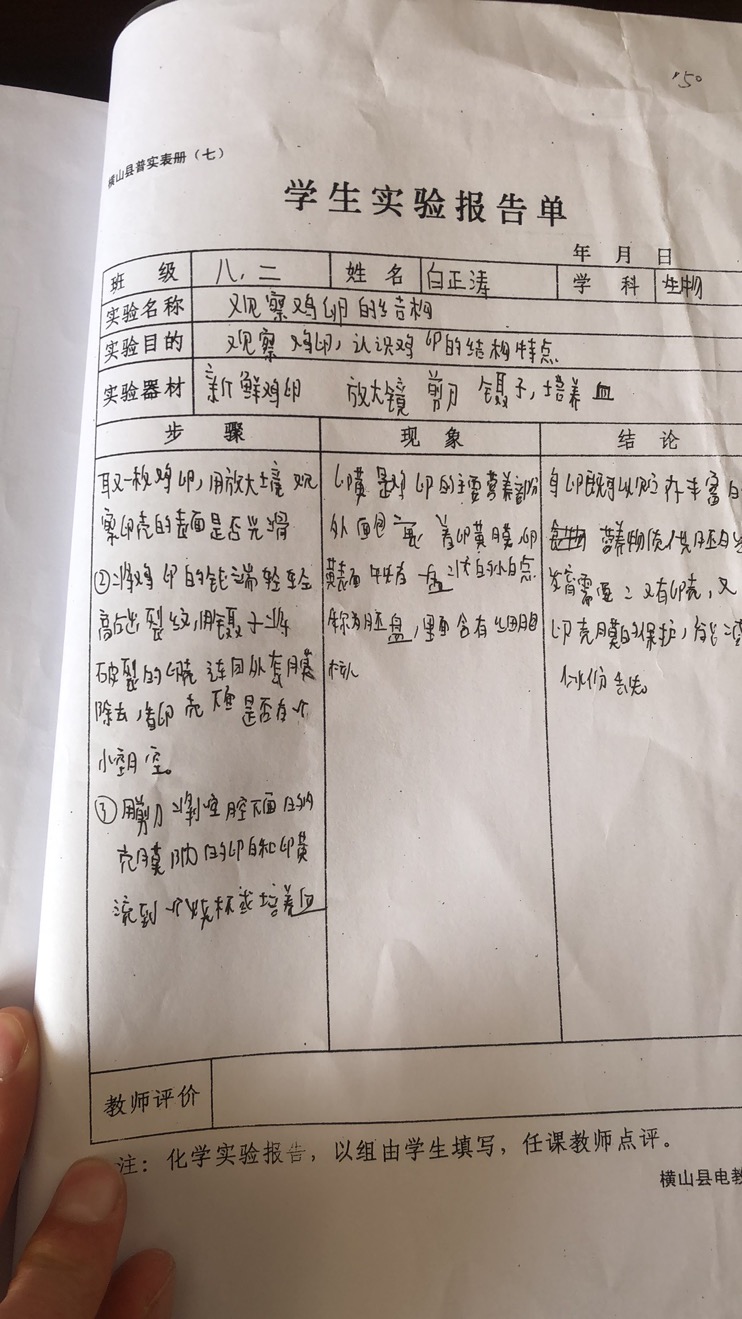 横山县普实表册（七）
学生实验报告单
年 月 日
班 级 八.二 姓 名 白正涛 学 科 生物
实验名称 观察鸡卵的结构
实验目的 观察鸡卵，认识鸡卵的结构特点
实验器材 新鲜鸡卵 放大镜 剪刀 镊子，培养皿
步 骤 现 象 结 论
取一枚鸡卵，用放大境观
察卵壳的表面是否光滑
②将鸡卵的钝端轻轻
敲出裂纹，用镊子将
破裂的卵壳连同外壳膜
除去，看卵壳下面是否有个
小空腔。
③用剪刀将空腔下面的内
壳膜 的卵白和卵黄
流到一个烧杯或培养皿
卵黄是鸡卵的主要营养部份
外面包 着卵黄膜，卵
黄表面中央有一盘状的小白点
称为胚盘，里面含有细胞
核
鸟卵既可以贮存丰富的
营养物质供胚胎
发育需要；又有卵壳，又
卵壳膜的保护，
水份丢失。
教师评价
注：化学实验报告，以组由学生填写，任课教师点评。
横山县电教